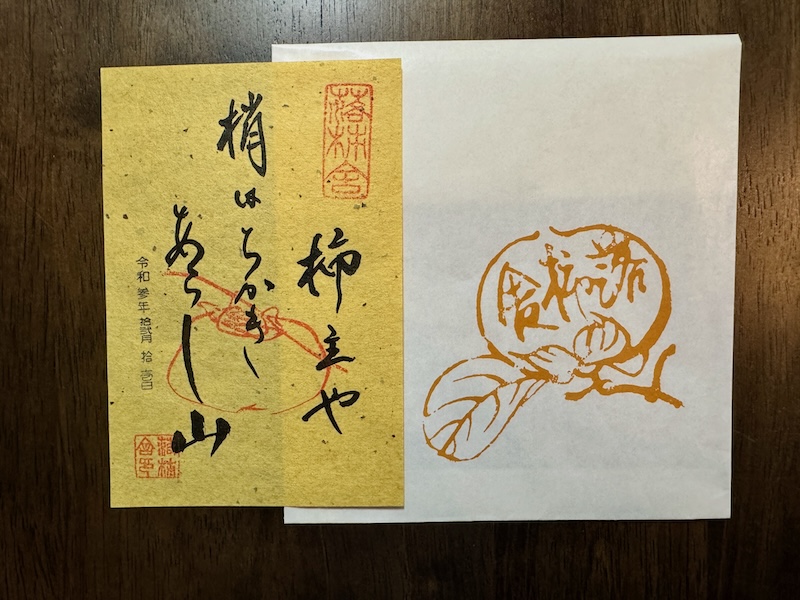 落柿舎
柿主や
梢はちかき
あらし山
令和参年拾弐月拾
落柿舎印
落柿舎